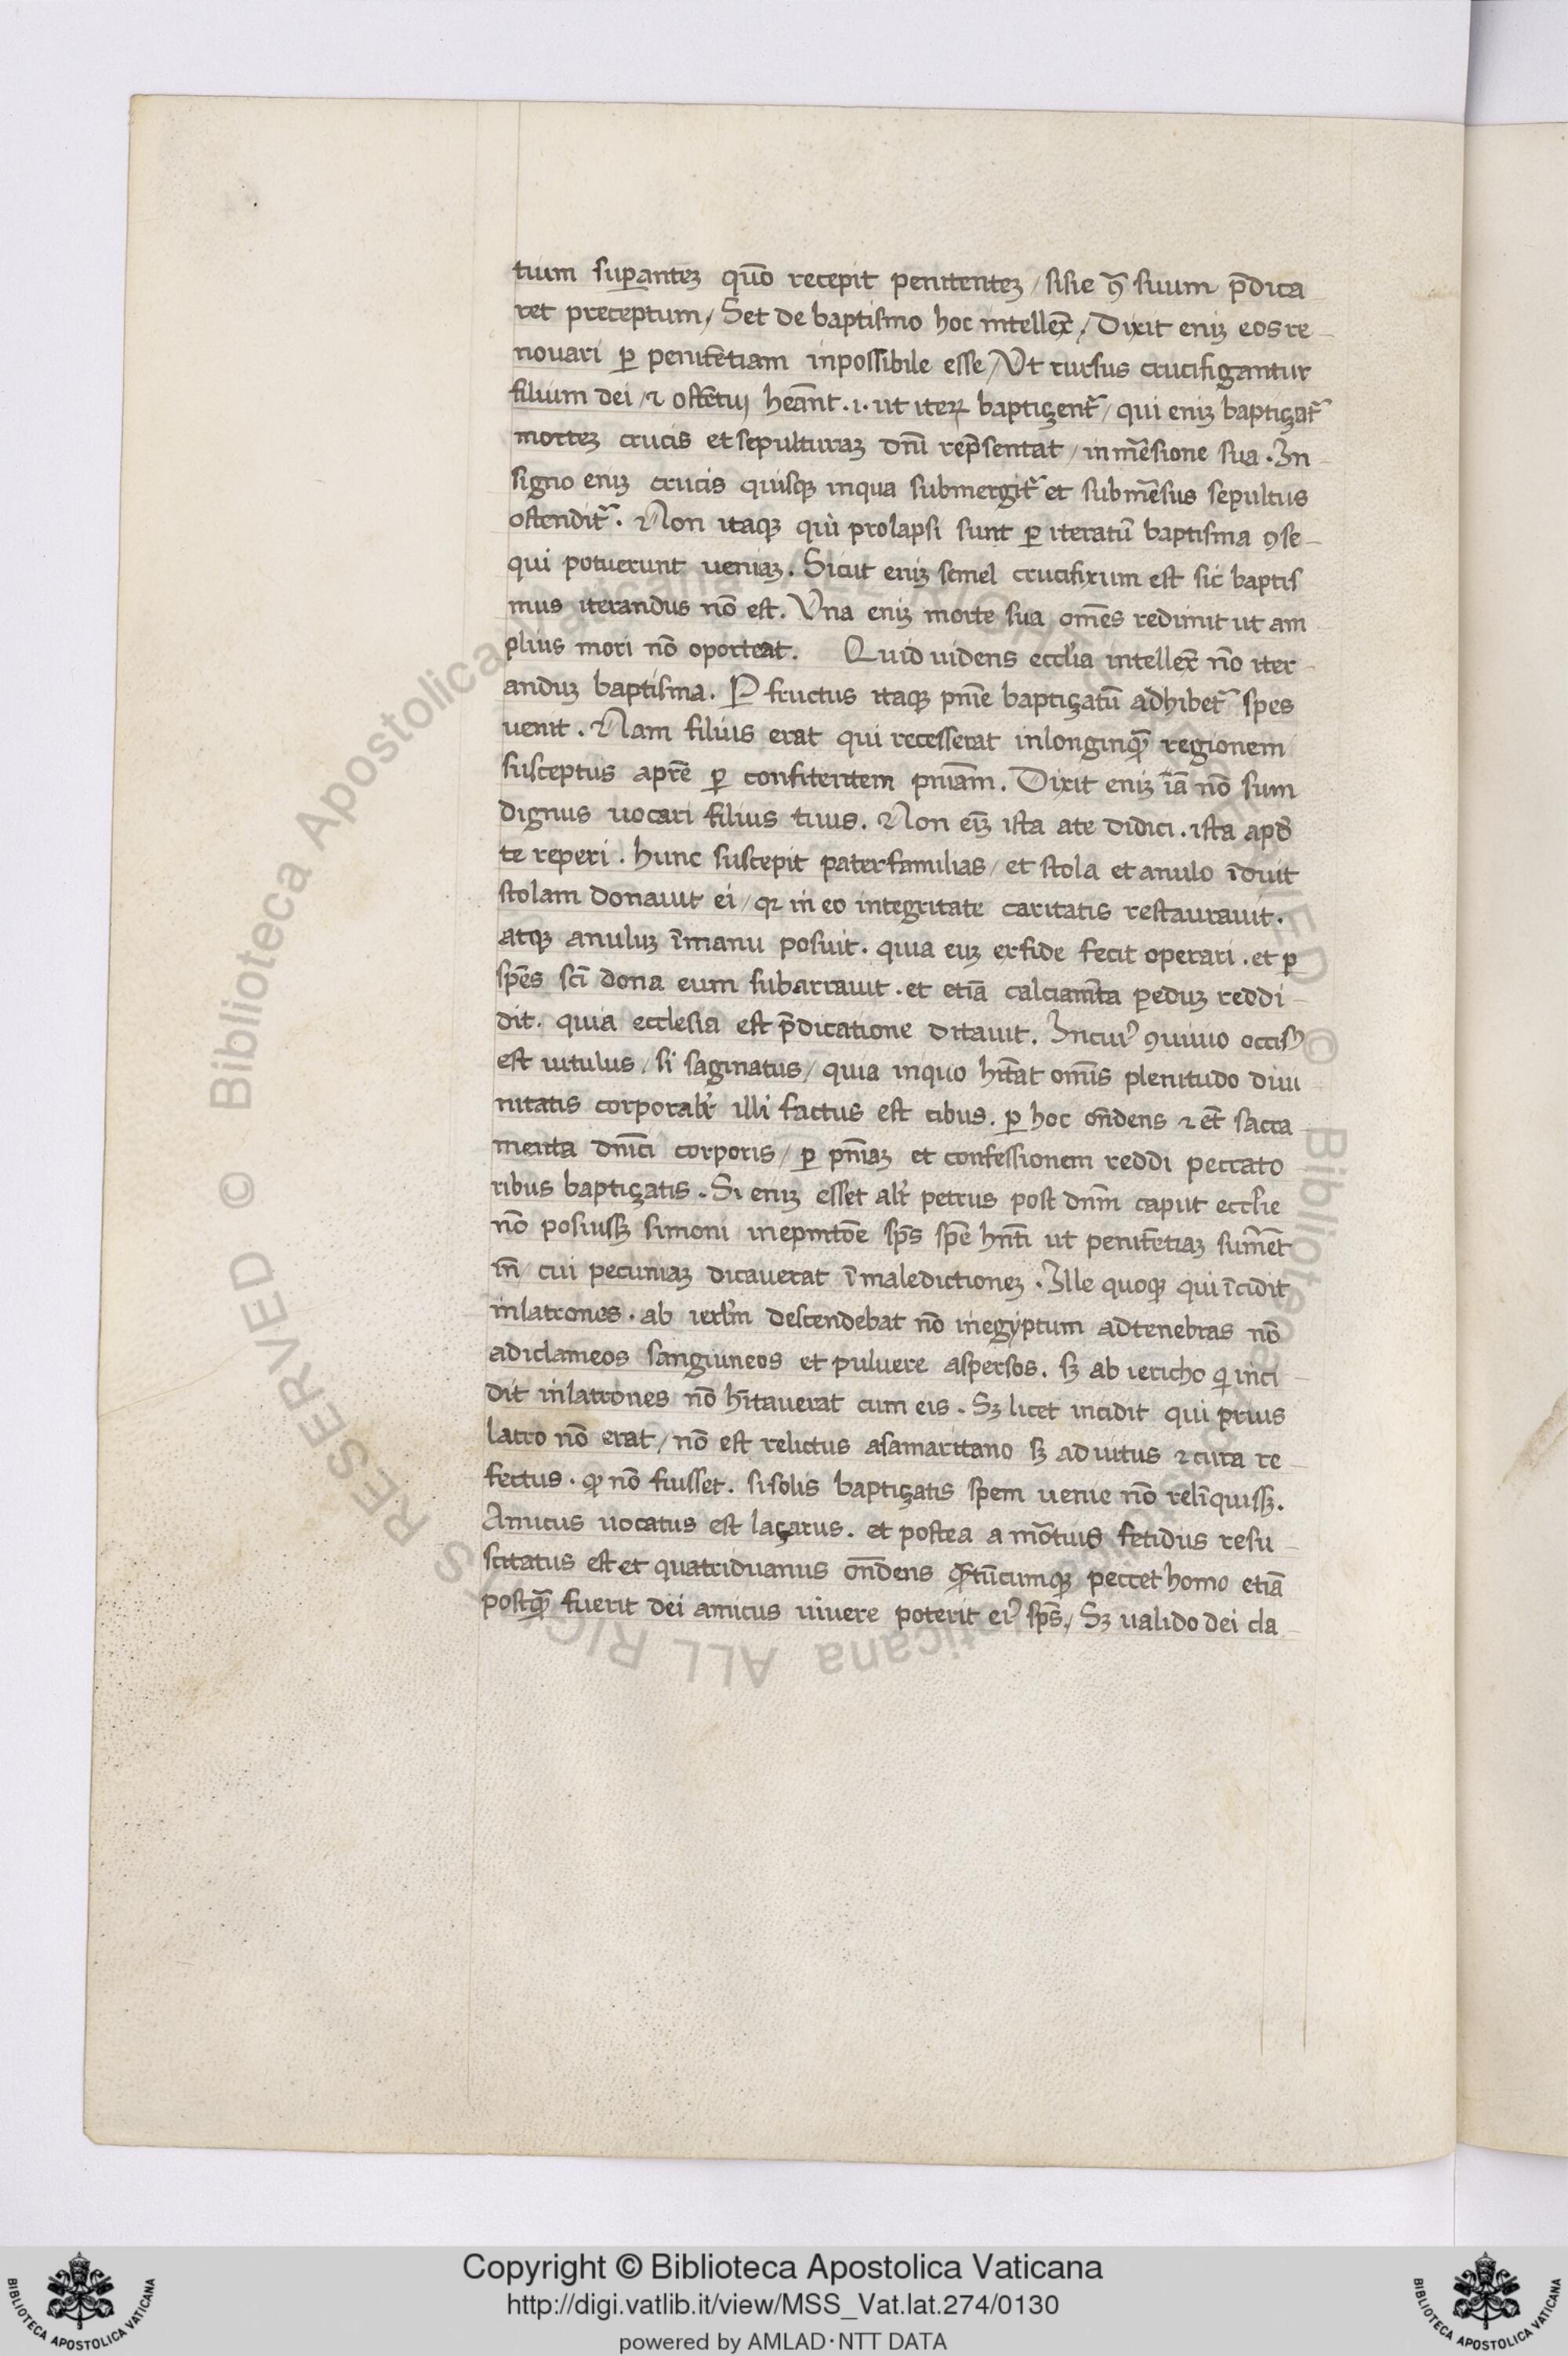 tium supanteʒ quō recepit penitenteʒ / sisie ꝯͣ suum p̄dica
ret preceptum / Set de baptismo hoc intellex̄ / Dixit eniʒ eos re
nouari ꝑ penitētiam inpossibile esse / Vt rursus crucifigantur
filium dei / ⁊ ostētui heānt .i. ut iteꝝ baptiçent᷑ / qui eniʒ baptiçat᷑
morteʒ crucis et sepulturaʒ dnī rep̄sentat / inm̄ēsione sua . In
signo eniʒ crucis quisqʒ inqua submergit᷑ et subm̄ēsus sepultus
ostendit᷑ . Non itaqʒ qui prolapsi sunt ꝑ iteratū baptisma ꝯse
qui potuerunt ueniaʒ . Sicut eniʒ semel crucifixum est sic baptis
mus iterandus nō est . Vna eniʒ morte sua om̄es redimit ut am
plius mori nō oporteat . Quid uidens eccl̄ia intellex̄ nō iter
anduʒ baptisma . P fructus itaqʒ pnīe baptiçatū adhibet᷑ spes
uenit . Nam filius erat qui recesserat inlonginqᷓ regionem
susceptus apr̄e ꝑ confitentem pnīam . Dixit eniʒ iā nō sum
dignus uocari filius tuus . Non eīʒ ista ate didici . ista apđ
te reperi . hunc suscepit paterfamilias / et stola et anulo īduit
stolam donauit ei / qꝛ in eo integritate caritatis restaurauit .
atqʒ anuluʒ īmanu posuit . quia euʒ exfide fecit operari . et ꝑ
sp̄es scī dona eum subarrauit . et etiā calciam̄ta peduʒ reddi
dit . quia ecclesia est p̄dicatione ditauit . Incuiꝰ ꝯuiuio occisꝰ
est uitulus / si saginatus / quia inquo hītat om̄is plenitudo diui
nitatis corporalr̄ illi factus est cibus . ꝑ hoc on̄dens ⁊ et̄ sacra
menta dnīci corporis / ꝑ pnīaʒ et confessionem reddi peccato
ribus baptiçatis . Si eniʒ esset alr̄ petrus post dnm̄ caput eccl̄ie
nō posuissʒ simoni sp̄s spē hn̄ti ut penitētiaʒ sum̄et
cui pecuniaʒ dicauerat ī maledictioneʒ . Ille quoqʒ qui īcidit
inlatrones . ab ierl̄m descendebat nō inegyptum adtenebras nō
sanguineos et puluere aspersos . sʒ ab iericho qͥ inci
dit inlatrones nō hītauerat cum eis . Sʒ licet incidit qui prius
latro nō erat / nō est relictus asamaritano sʒ ad uitus ⁊ cura re
fectus . qͩ nō fuisset . sisolis baptiçatis spem uenie nō relīquissʒ .
Amicus uocatus est laçarus . et postea a mōtuis fetidus resu
scitatus est et quatriduanus on̄dens qͣtūcumqʒ peccet homo etiā
postqᷓ fuerit dei amicus uiuere poterit eiꝰ sp̄s / Sʒ ualido dei cla
Copyright © Biblioteca Apostolica Vaticana
http://digi.vatlib.it/view/MSS_Vat.lat.274/0130
powered by AMLAD·NTT DATA
BIBLIOTECA APOSTOLICA VATICANA
BIBLIOTECA APOSTOLICA VATICANA
© Biblioteca Apostolica Vaticana ALL RIGHTS RESERVED © Biblioteca Apostolica Vaticana ALL RIGHTS RESERVED